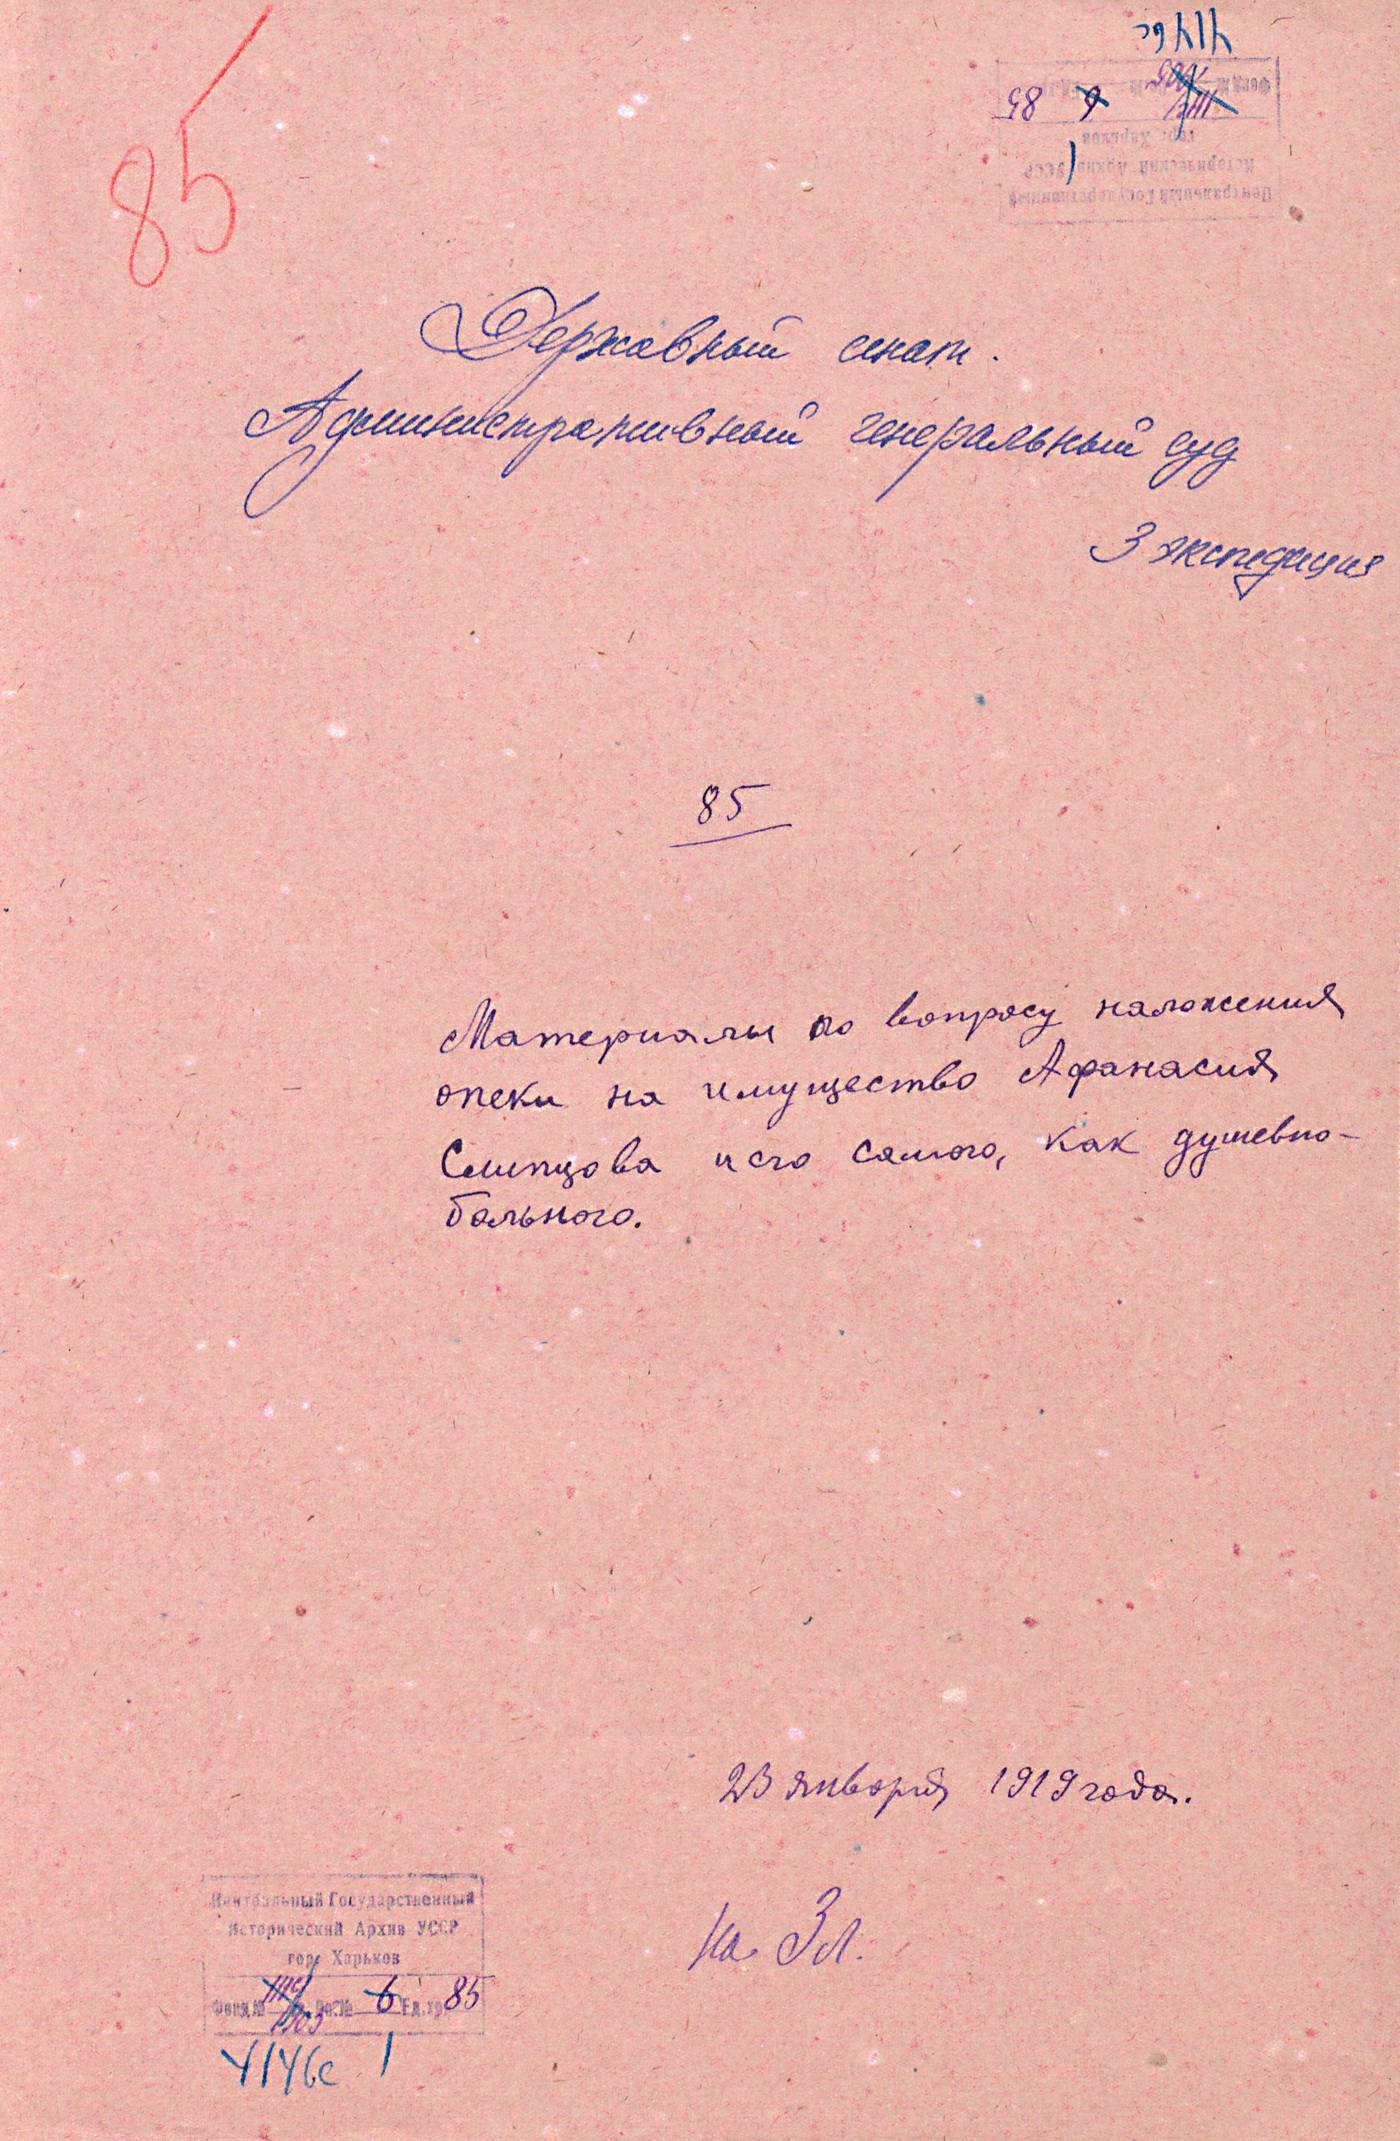 85
4146с
Центральный Государственный
Исторический Архив УССР
гор. Харьков
Фонд № 6 85
1
Державный сенат.
Административный генеральный суд
3 экспедиция
85
Материалы по вопросу наложения
опеки на имущество Афанасия
Слипцова и его самого, как душевно-
больного.
23 января 1919 года.
на 3 л.
Центральный Государственный
Исторический Архив УССР
гор. Харьков
Фонд № Оп. № 6 Ед. хр. 85
4146с 1